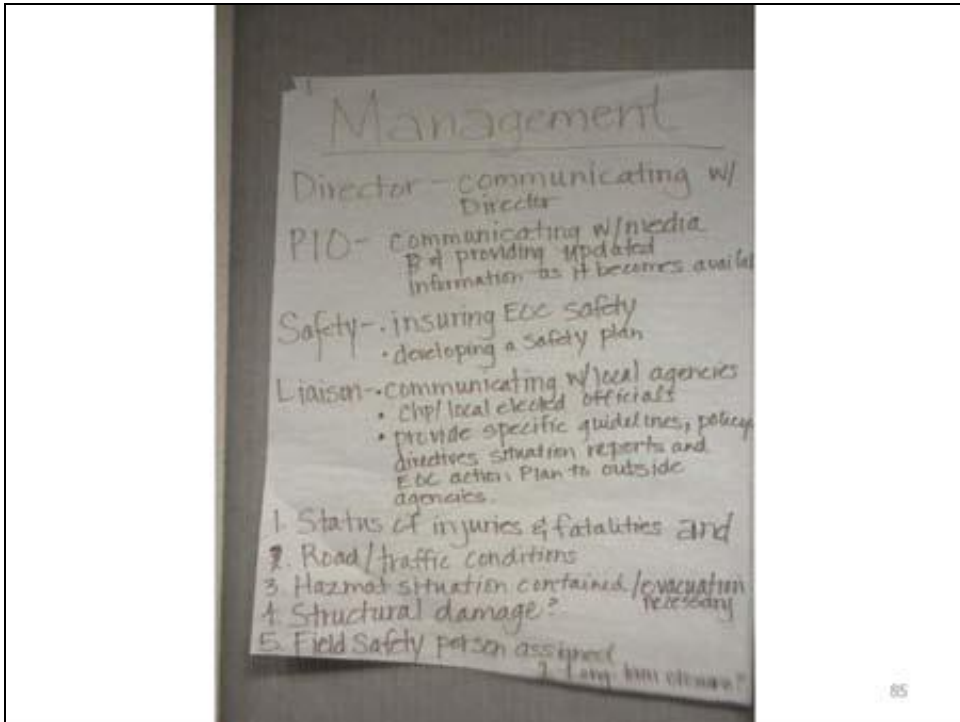 Management
Director - communicating w/
Director
PIO - communicating w/media
providing updated
information as it becomes availab
Safety - • insuring EOC safety
• developing a safety plan
Liaison - • communicating w/local agencies
• Chp/local elected officials
• provide specific guidelines, policy
directives situation reports and
EOC action Plan to outside
agencies.
1. Status of injuries & fatalities and
2. Road/traffic conditions
3 Hazmat situation contained/evacuation
necessary
4. Structural damage?
5. Field Safety person assigned
85